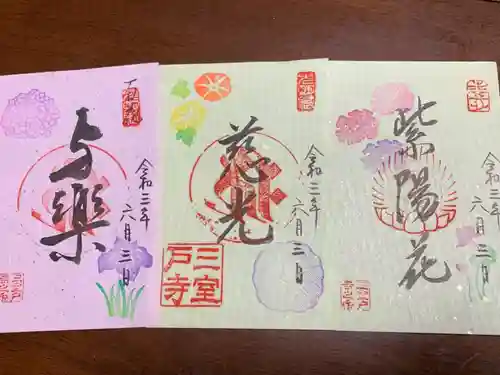 与樂
令和三年
六月三日
慈光
令和三年
六月三日
三室
戸寺
紫陽花
令和三年
六月三日